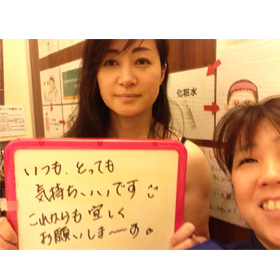 化粧水
いつも、とっても
気持ちいいです
これからも宜しく
お願いしま〜〜す。